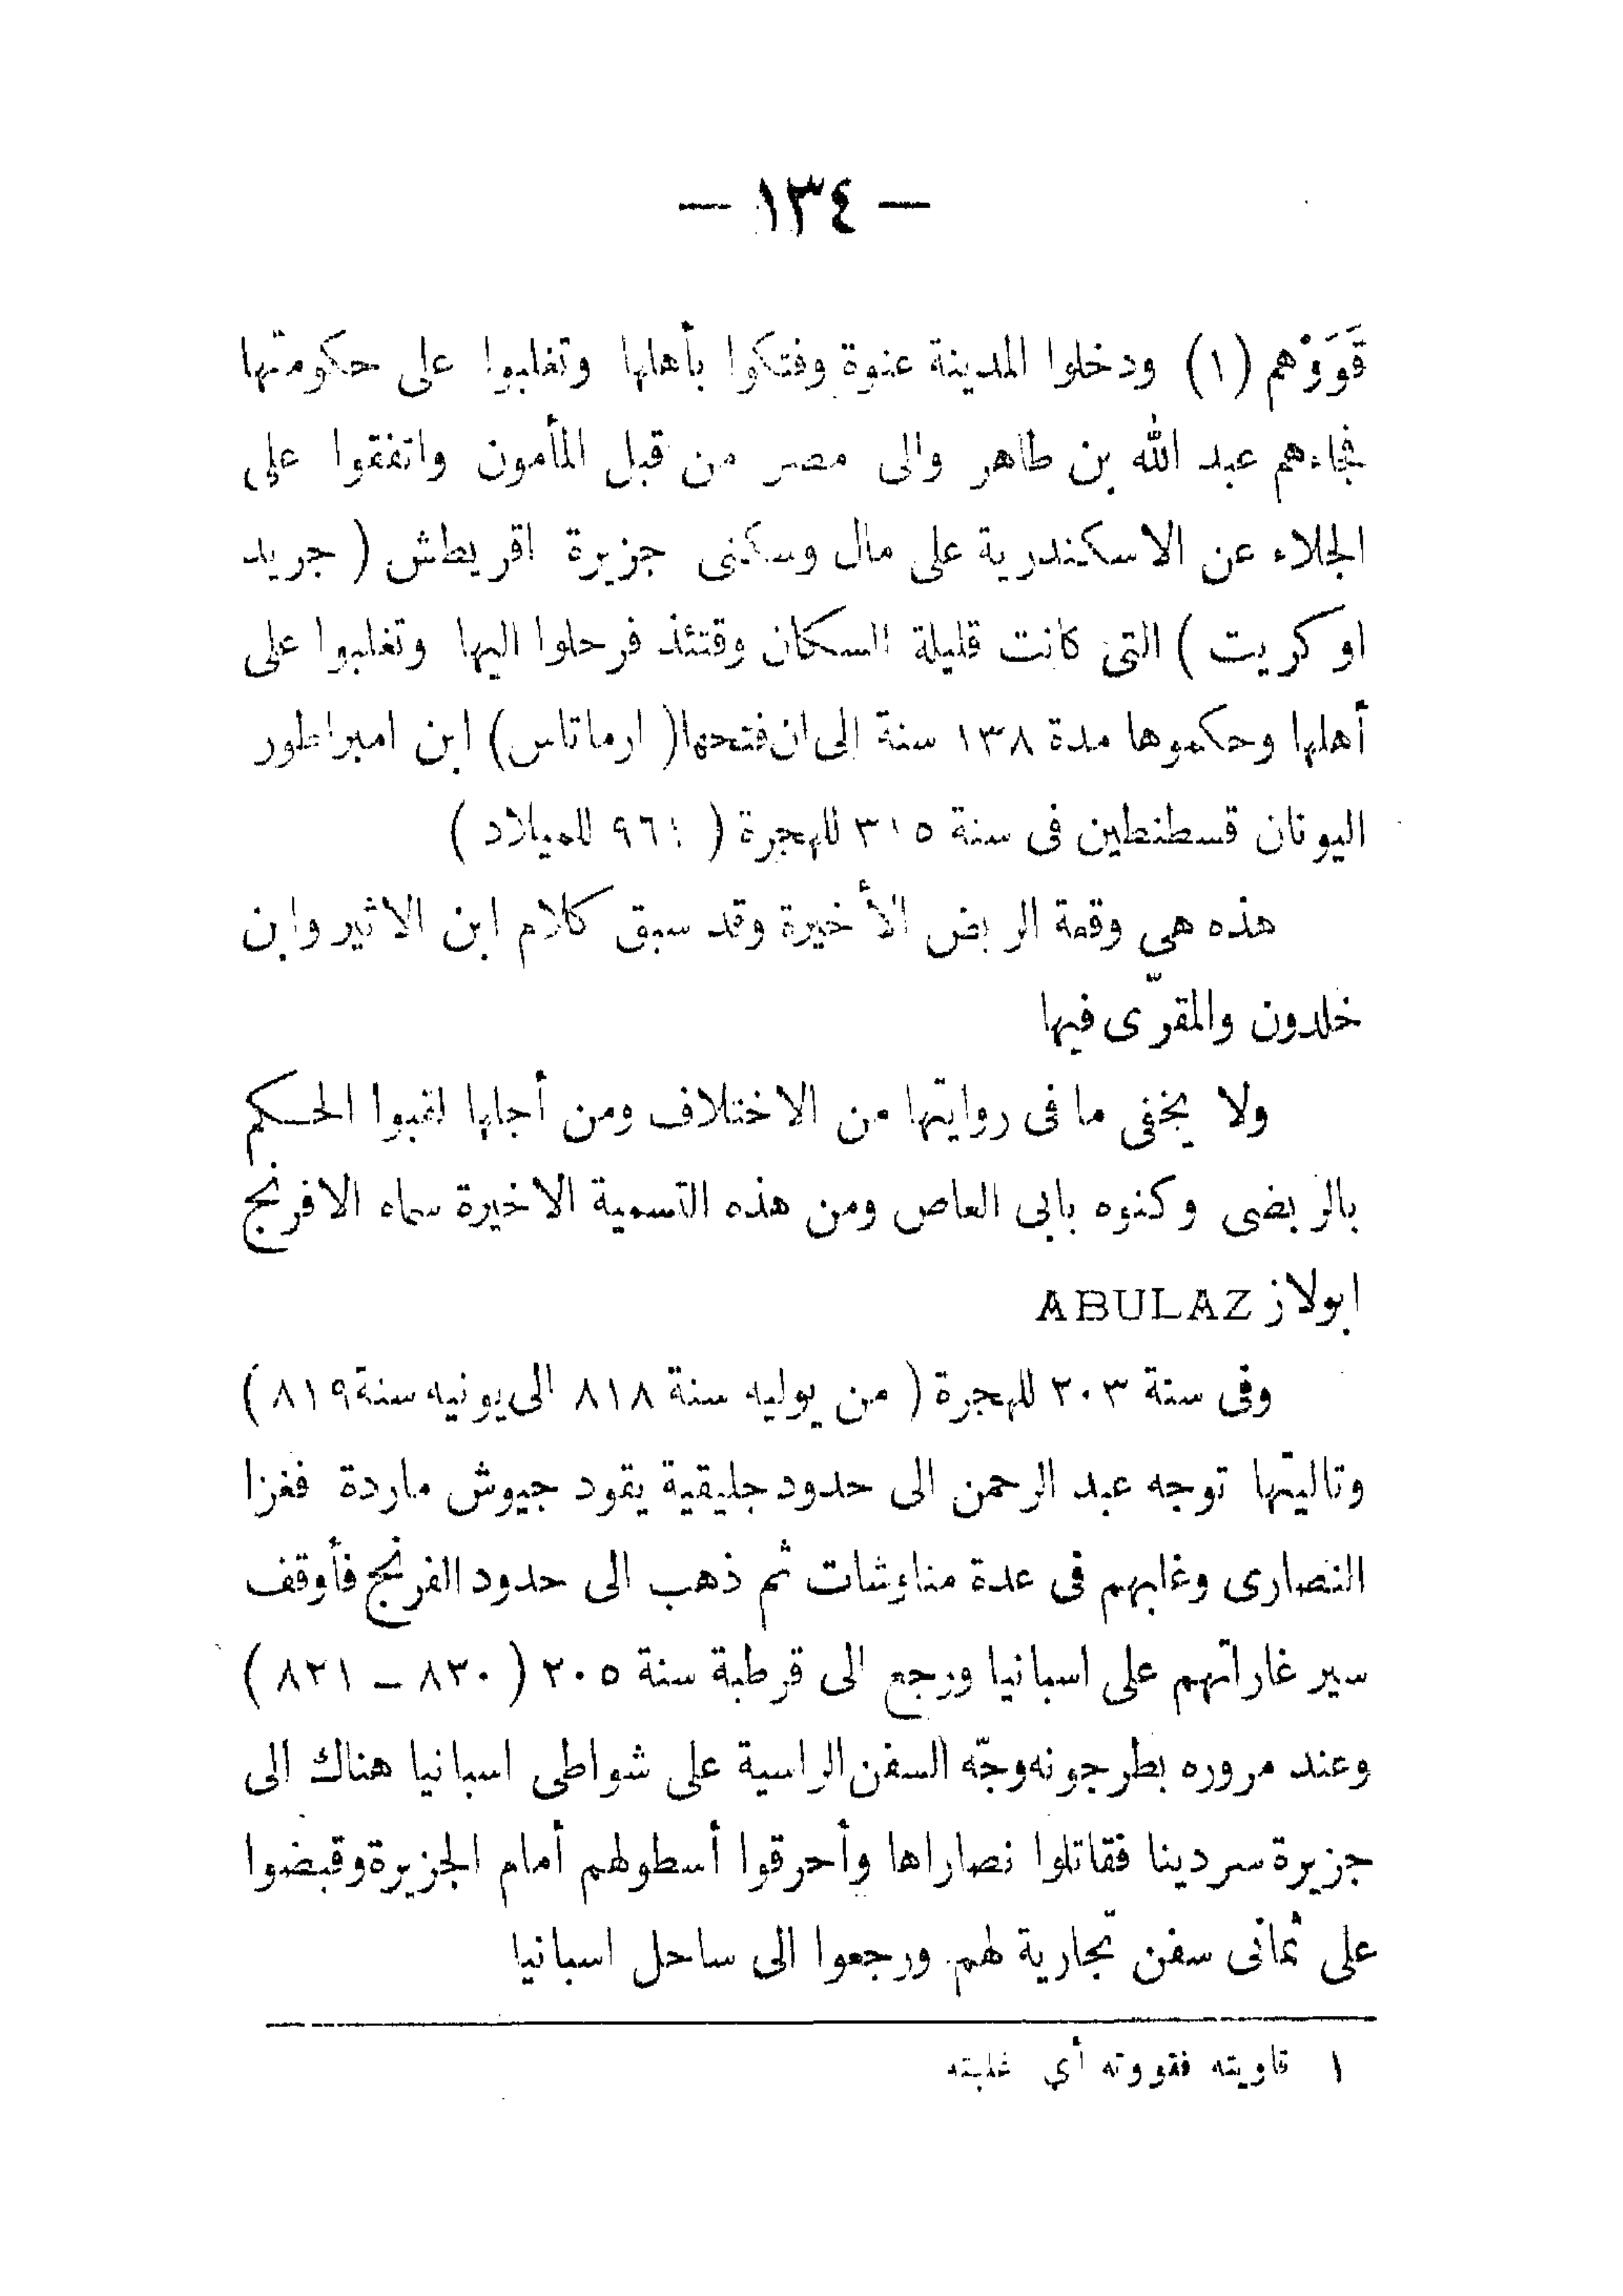 — ١٣٤ —
قَوَوْهم (١) ودخلوا المدينة عنوة وفتكوا بأهلها وتغلبوا على حكومتها
فجاءهم عبد الله بن طاهر والى مصر من قبل المأمون واتفقوا على
الجلاء عن الاسكندرية على مال وسكنى جزيرة اقريطش ( جريد
او كريت ) التي كانت قليلة السكان وقتئذ فرحلوا اليها وتغلبوا على
أهلها وحكموها مدة ١٣٨ سنة إلى ان فتحها ( ارماتاس ) ابن امبراطور
اليونان قسطنطين فى سنة ٣١٥ للهجرة ( ٩٦١ للميلاد )
هذه هي وقعة الربض الأخيرة وقد سبق كلام ابن الاثير وابن
خلدون والمقرّى فيها
ولا يخفى ما فى روايتها من الاختلاف ومن أجلها لقبوا الحكم
بالربضى وكنوه بابى العاص ومن هذه التسمية الاخيرة سماه الافرنج
ابولاز ABULAZ
وفى سنة ٢٠٣ للهجرة ( من يوليه سنة ٨١٨ الى يونيه سنة ٨١٩ )
وتاليتها توجه عبد الرحمن الى حدود جليقية يقود جيوش ماردة فغزا
النصارى وغلبهم فى عدة مناوشات ثم ذهب الى حدود الفرنج فأوقف
سير غاراتهم على اسبانيا ورجع الى قرطبة سنة ٢٠٥ ( ٨٣٠ – ٨٢١ )
وعند مروره بطرجونه وجّه السفن الراسية على شواطى اسبانيا هناك الى
جزيرة سردينا فقاتلوا نصاراها وأحرقوا أسطولهم أمام الجزيرة وقبضوا
على ثمانى سفن تجارية لهم ورجعوا الى ساحل اسبانيا
١ قاويته فقووته أي غلبته